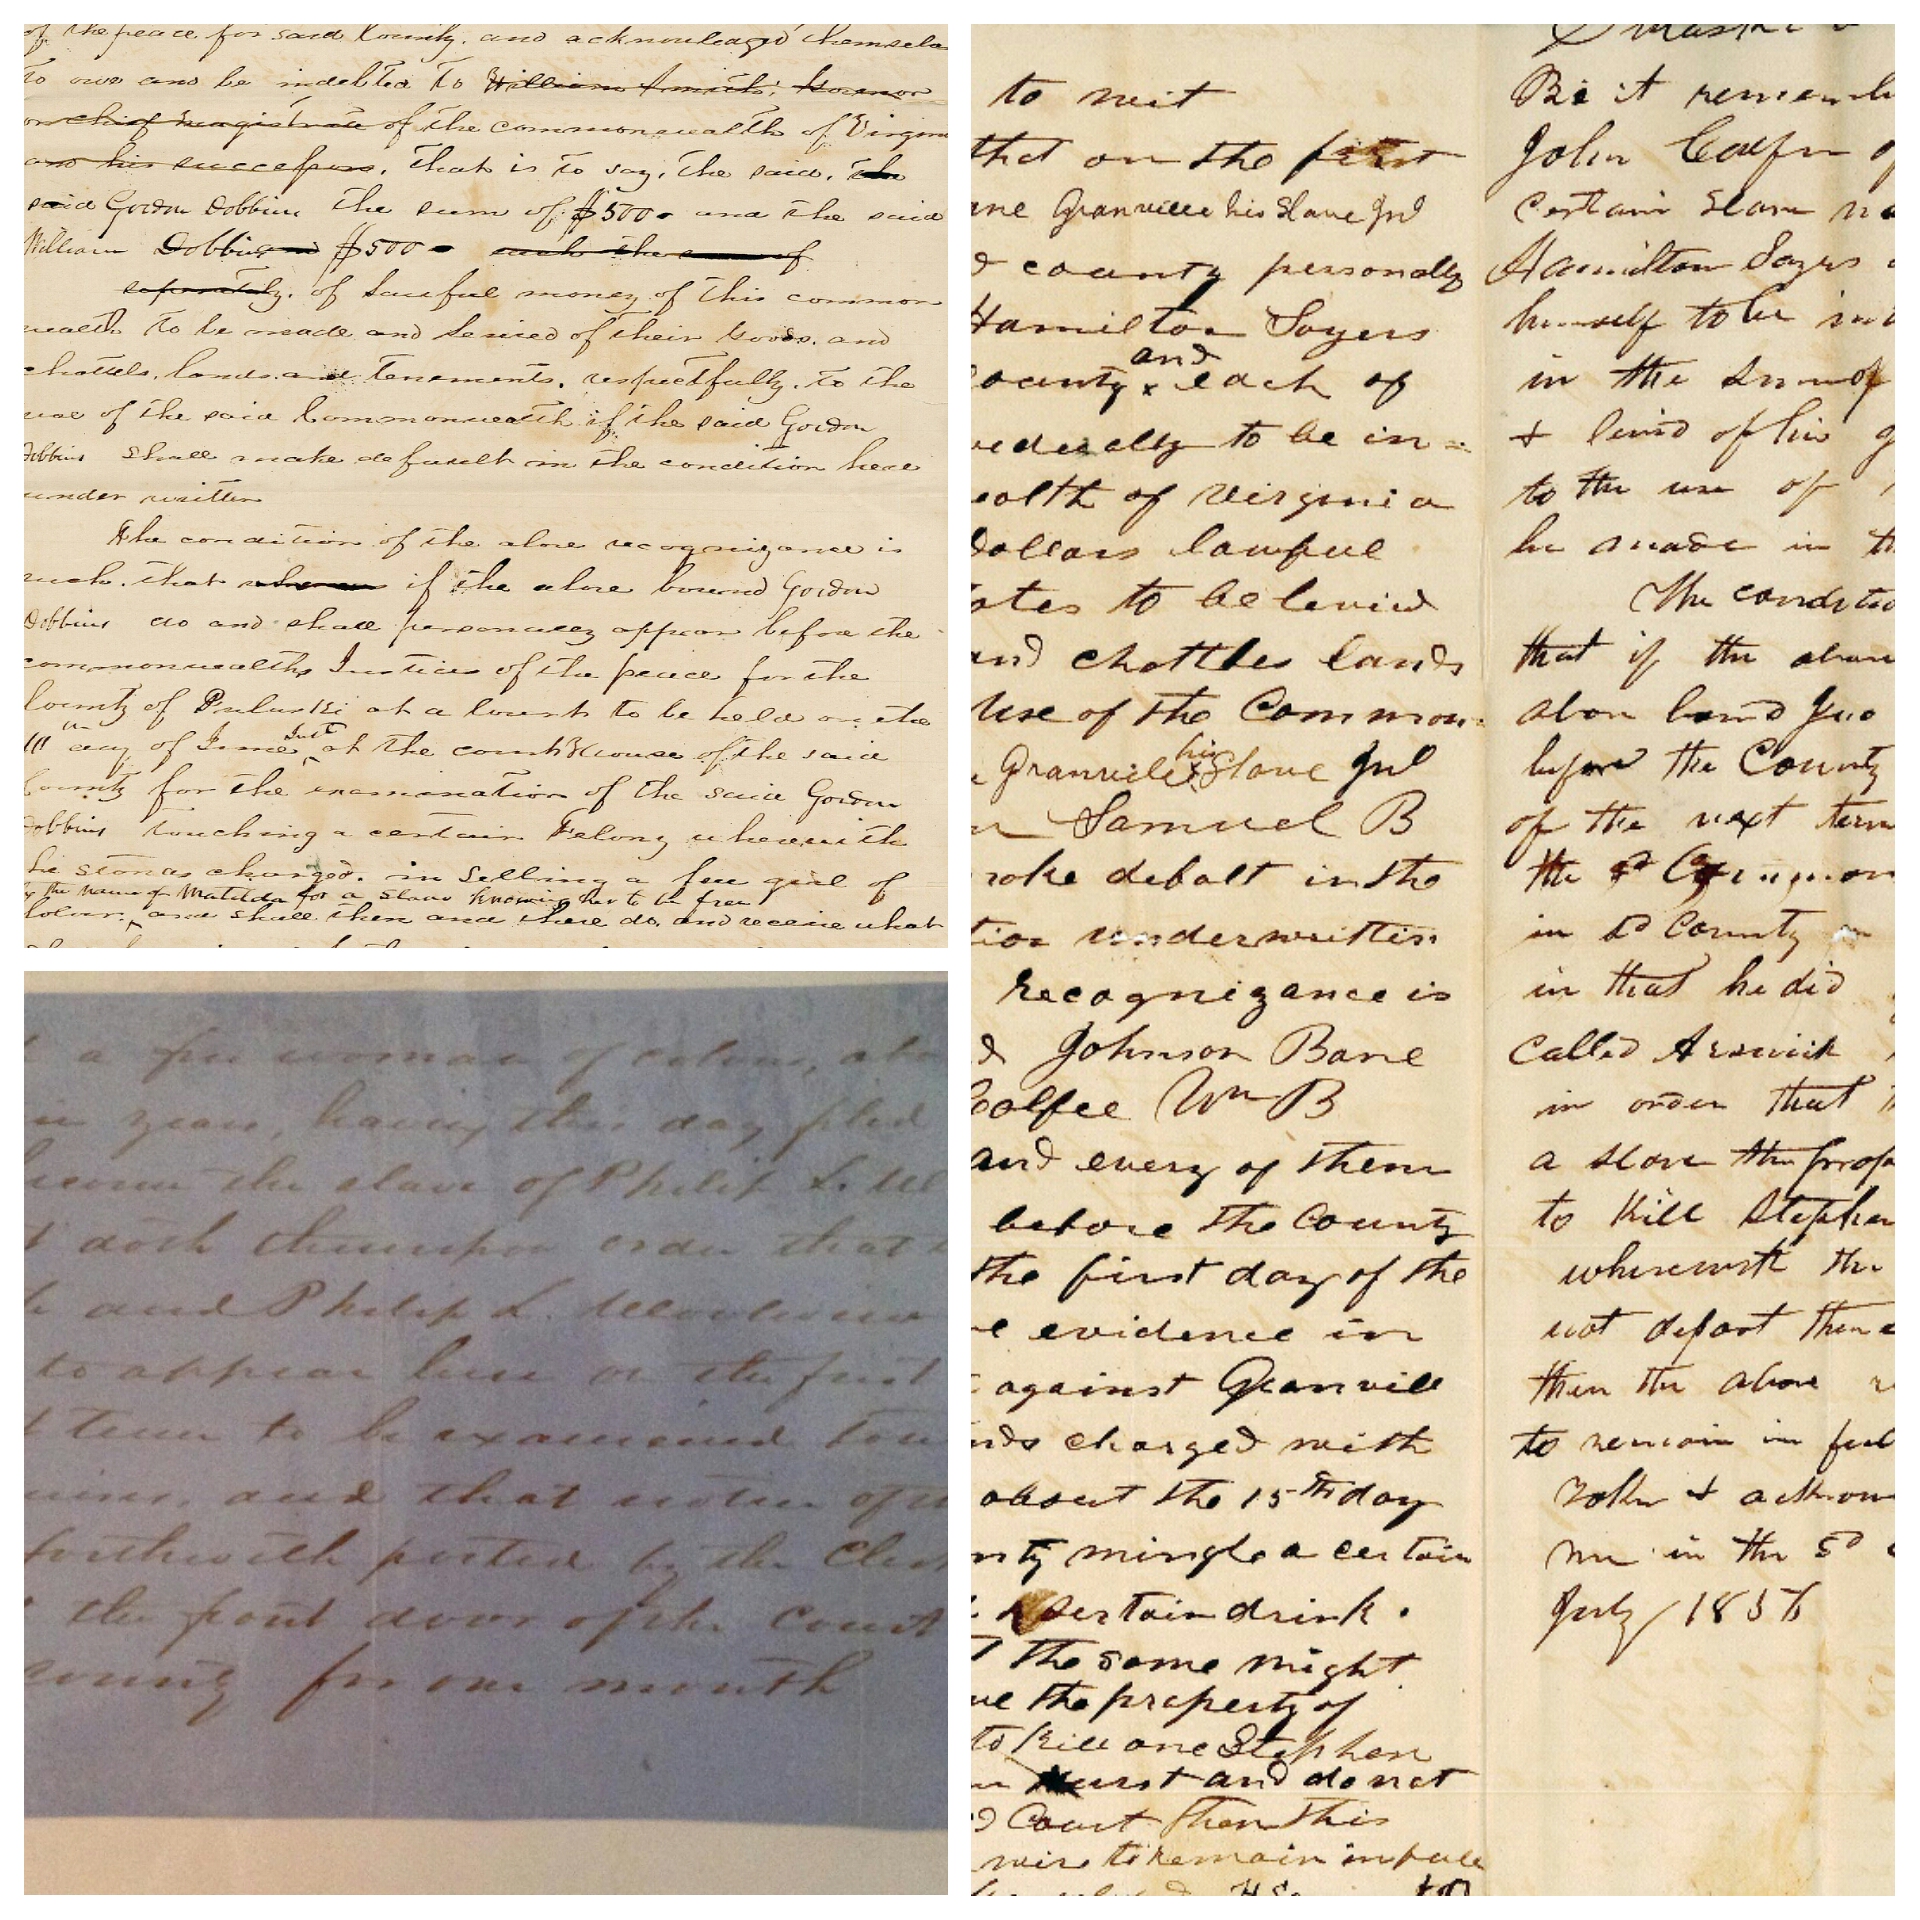 of the peace for said County, and acknowledged themselv
to owe and be indebted to William Smith, Governor
or chief magistrate of the commonwealth of Virgin
and his successors, that is to say, the said, the
said Gordon Dobbins the sum of $500 and the said
William Dobbins and $500 each the sum of
separately, of lawful money of this common
wealth to be made and levied of their Goods, and
chattels, lands and tenements, respectfully, to the
use of the said Commonwealth if the said Gordon
Dobbins shall make default in the condition here
under written
The condition of the above recognizance is
such, that whereas if the above bound Gordon
Dobbins do and shall personally appear before the
commonwealths Justices of the peace for the
County of Pulaski at a Court to be held on the
day of June Inst at the court House of the said
County for the examination of the said Gordon
Dobbins touching a certain Felony wherewith
he stands charged. in selling a free girl of
the name of Matilda for a slave knowing her to be free
Colour, and shall then and there do, and receive what
a free woman of colour,
years, having this day filed
the slave of Philip L.
doth thereupon order that
and Philip L. Woolwine
to appear here on the first
term to be examined
and that notice of
forthwith posted by the Cler
the front door of the Court
county for one month
to wit
that on the first
Granville his Slave Jnd
county personally
Hamilton Sayers
and
County x each of
to be in =
ealth of Virginia
Dollars lawful
ates to be levied
and chattles lands
Use of the Common
his
Granville x Slave Jnd
Samuel B
make debalt in the
tion underwritten
recognizance is
Johnson Bane
Calfee Wm B
and every of them
before the County
the first day of the
evidence in
against Granvill
nds charged with
about the 15th day
nty mingle a certain
certain drink.
the same might
the property of
to kill one Stephen
Hurst and do not
Court then this
wise to remain in full
Be it rememb
John Calfee of
certain Slave
Hamilton Sayers
himself to be in
in the Sum of
+ levied of his g
to the use of
be made in th
The conditio
that if the above
above bound Jno
before the County
of the next term
the Common
in sd County
in that he did
called Arsenick
in order that
a slave the prop
to Kill Stephen
wherewith the
not depart thence
then the above
to remain in full
Taken + acknow
me in the sd
July 1856